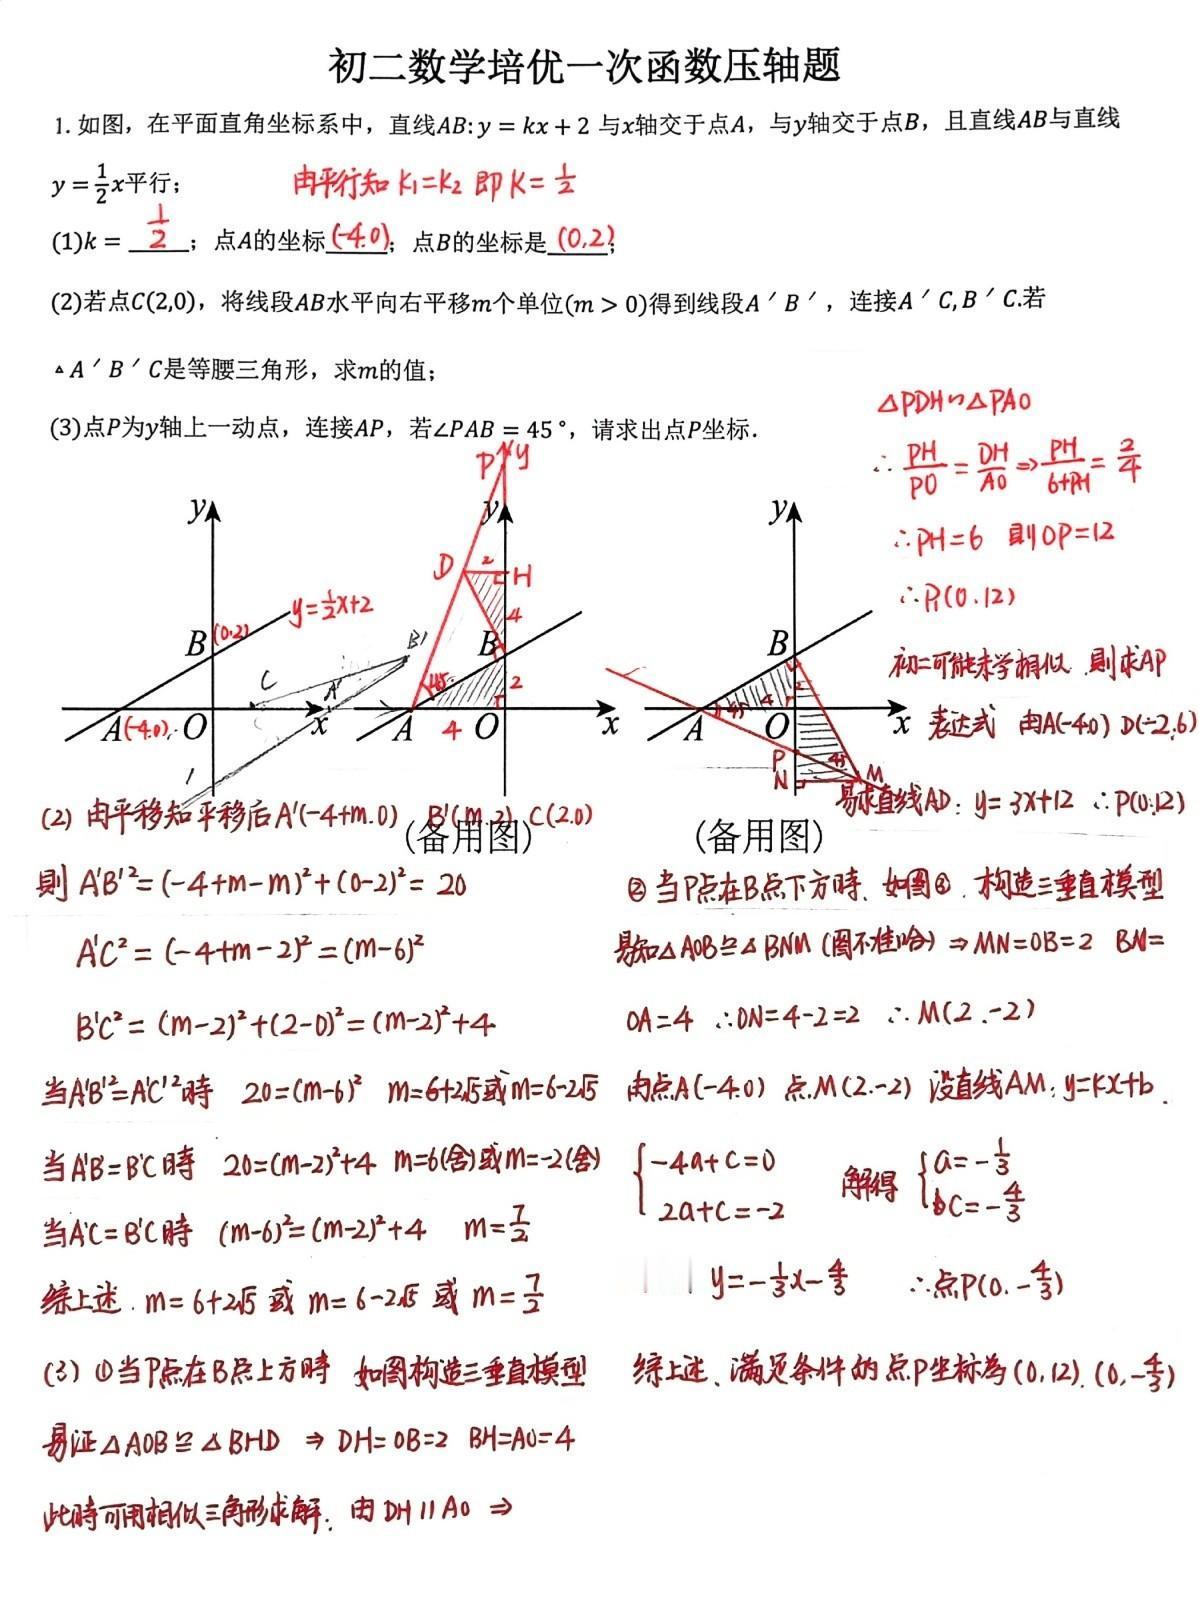 初二数学培优一次函数压轴题
1. 如图，在平面直角坐标系中，直线AB: y = kx + 2 与x轴交于点A，与y轴交于点B，且直线AB与直线
y = 1/2 x平行；
由平行知 K₁=K₂ 即 K = 1/2
(1)k = 1/2 ；点A的坐标(-4.0)；点B的坐标是 (0,2)；
(2)若点C(2,0)，将线段AB水平向右平移m个单位(m > 0)得到线段A′B′，连接A′C, B′C.若
△A′B′C是等腰三角形，求m的值；
(3)点P为y轴上一动点，连接AP，若∠PAB = 45°，请求出点P坐标.
△PDH∽△PAO
∴ PH/PO = DH/AO ⇒ PH/6+PH = 2/4
∴PH=6 則OP=12
∴P₁(0.12)
初二可能未学相似.則求AP
表达式 由A(-4.0) D(-2.6)
易求直线AD: y=3x+12 ∴P(0.12)
y
B
(0.2)
y=1/2x+2
C
A'
B'
A
(-4.0)
O
x
P
y
y
D
2
H
4
B
45°
2
A
4
O
x
(备用图)
y
B
2
4
45
A
O
x
P
N
45
M
(备用图)
(2) 由平移知平移后A'(-4+m.0) B'(m.2) C(2.0)
則 A'B'²=(-4+m-m)²+(0-2)²= 20
A'C² = (-4+m-2)² = (m-6)²
B'C² = (m-2)²+(2-0)²=(m-2)²+4
当A'B'²=A'C'²時 20=(m-6)² m=6+2√5或m=6-2√5
当A'B'=B'C時 20=(m-2)²+4 m=6(舍)或m=-2(舍)
当A'C=B'C時 (m-6)²=(m-2)²+4 m=7/2
综上述.m=6+2√5 或 m=6-2√5 或 m=7/2
(3) ①当P点在B点上方時 如图构造三垂直模型
易证△AOB≌△BHD ⇒ DH=OB=2 BH=AO=4
此時可用相似三角形求解. 由DH∥AO ⇒
② 当P点在B点下方時、如图②.构造三垂直模型
易知△AOB≌△BNM (图不准哈) ⇒MN=OB=2 BN=
OA=4 ∴ON=4-2=2 ∴M(2.-2)
由点A(-4.0) 点M(2.-2) 设直线AM: y=kx+b.
{-4a+c=0
2a+c=-2
解得 {a=-1/3
c=-4/3
y=-1/3x-4/3 ∴点P(0.-4/3)
综上述、满足条件的点P坐标為(0,12).(0,-4/3)